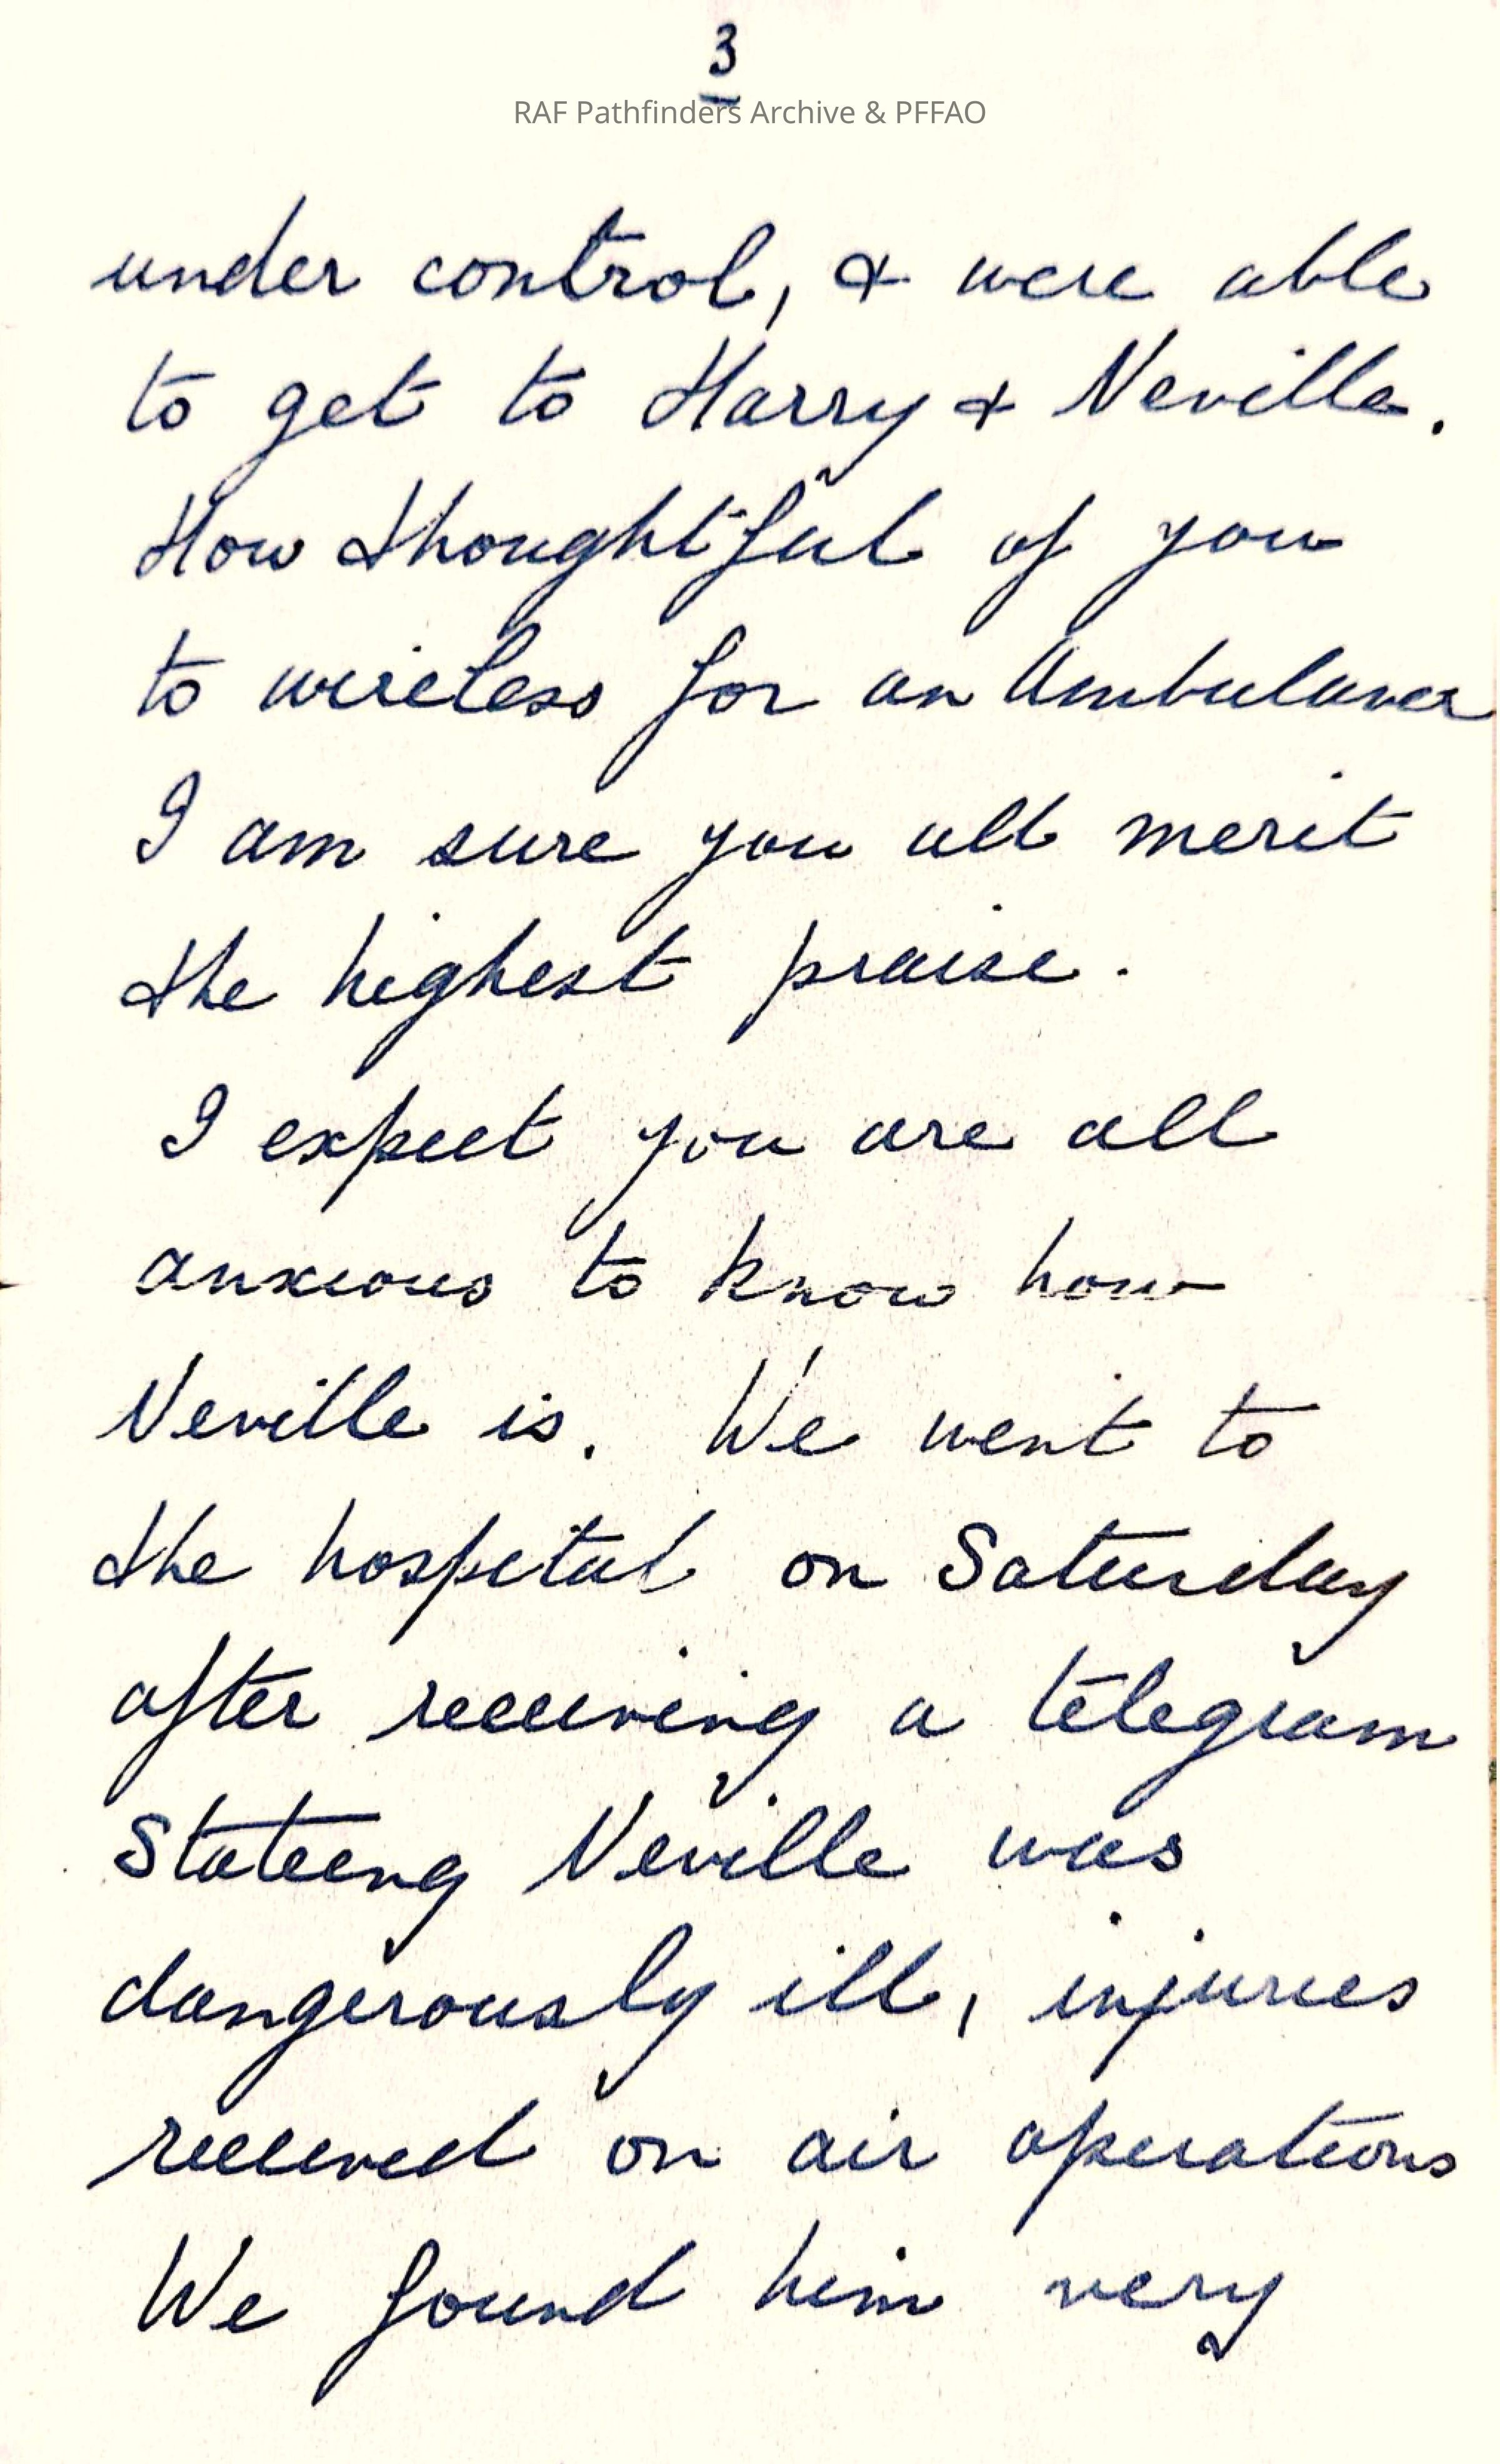 3
RAF Pathfinders Archive & PFFAO
under control, & were able
to get to Harry & Neville.
How thoughtful of you
to wireless for an Ambulance
I am sure you all merit
the highest praise.
I expect you are all
anxious to know how
Neville is. We went to
the hospital on Saturday
after receiving a telegram
Stateing Neville was
dangerously ill, injuries
received on air operations
We found him very